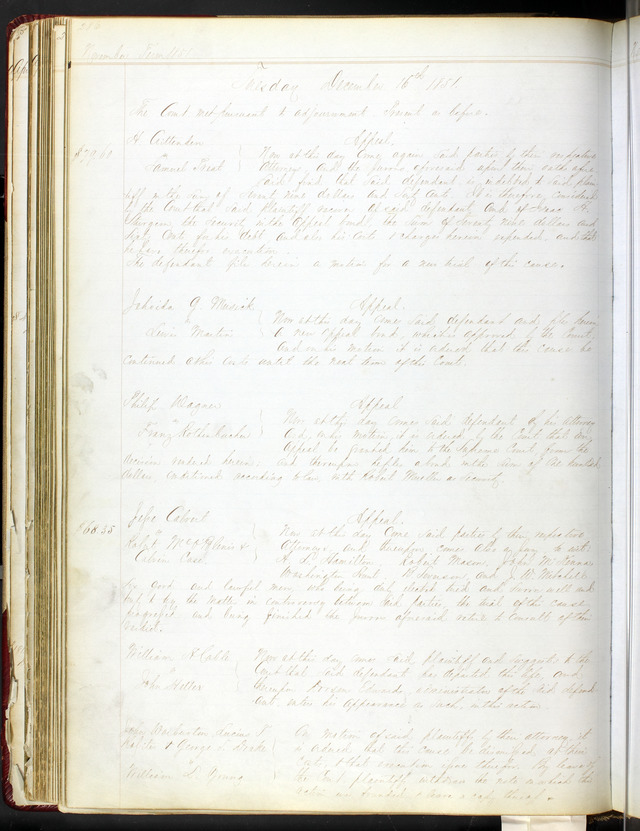 November Term 1851
Tuesday December 16th 1851
The Court met pursuant to adjournment. Present as before.
A Cittenden Appeal.
$79.60 Now at this day come again said parties by their respective
Samuel Treat attorneys and the jurors aforesaid upon their oaths afore
said find that said defendant is indebted to said plain
tiff in the sum of Seventy nine dollars and sixty cents. It is therefore considered
by the Court that said plaintiff recover of said defendant and of Isaac
Sturgeon the security in the appeal bond the sum of Seventy nine dollars and
sixty cents for his debt and also his costs & charges herein expended and that
he have thereof execution.
The defendant files herein a motion for a new trial of this cause.
G. Musick Appeal.
Lewis Martin Now at this day comes said defendant and files herein
a new appeal bond, which is approved by the Court.
And on his motion it is ordered that this cause be
continued at his costs until the next term of this Court.
Philip Wagner Appeal
Franz Rothenbucher Now at this day comes said defendant by his attorney
and on his motion, it is ordered by the Court that an
Appeal be granted him to the Supreme Court from the
decision rendered herein. And thereupon he files a bond in the sum of two hundred
dollars, conditioned according to law, with as security.
Appeal.
$68.35 Jesse Calvert Now at this day come said parties by their respective
Ralph & attorneys and thereupon comes also a jury to wit:
Calvin Case A L Hamilton Robert Mason, John W.
Washington and J. W. Mitchell
good and lawful men, who being duly elected tried and sworn well and
truly to try the matter in controversy between said parties, the trial of this cause
progressed and being finished the jurors aforesaid retire to consult of their
verdict.
William H Cable Now at this day comes said plaintiff and suggests to the
Court that said defendant has departed this life, and
John Heller thereupon Edwards, administrator of the said defend
ant, enters his appearance as such, in this action.
John Washington, Lucius On motion of said plaintiffs by their attorney it
& George Drake is ordered that this cause be dismissed at their
costs, & that execution issue therefor. By leave of
William L. Young the Court plaintiffs withdraw the note on which this
action was founded & leave a copy thereof.